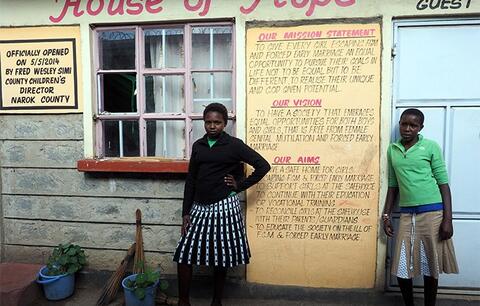 House of Hope
GUEST
OFFICIALLY OPENED
ON 5/5/2014
BY FRED WESLEY SIMI
COUNTY CHILDREN'S
DIRECTOR
NAROK COUNTY
OUR MISSION STATEMENT
TO GIVE EVERY GIRL ESCAPING FGM
AND FORCED EARLY MARRIAGE AN EQUAL
OPPORTUNITY TO PURSUE THEIR GOALS IN
LIFE NOT TO BE EQUAL BUT TO BE
DIFFERENT. TO REALISE THEIR UNIQUE
AND GOD GIVEN POTENTIAL
OUR VISION
TO HAVE A COMMUNITY THAT EMBRACES
EQUAL OPPORTUNITIES FOR BOTH BOYS
AND GIRLS, THAT IS FREE FROM FEMALE
GENITAL MUTILATION AND FORCED
EARLY MARRIAGE
OUR AIMS
HAVE A SAFE HOME FOR GIRLS
ESCAPING FGM & FORCED EARLY MARRIAGE
TO SUPPORT GIRLS AT THE SAFEHOUSE
TO CONTINUE WITH THEIR EDUCATION
OR VOCATIONAL TRAINING
TO RECONCILE GIRLS AT THE SAFEHOUSE
WITH THEIR PARENTS/GUARDIANS
TO EDUCATE THE SOCIETY ON THE ILL OF
F.G.M & FORCED EARLY MARRIAGE